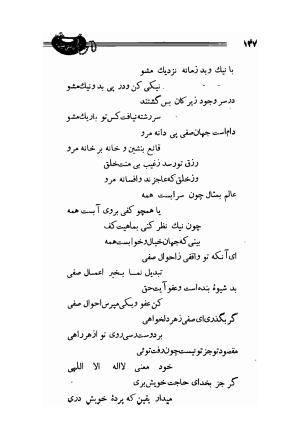 ۱۴۷
با نیك وبد زمانه نزدیك مشو
نیکی کن ودر پی بد ونیك مشو
در سر وجود زیرکان بس گشتند
سررشته نیافت کس تو باریك مشو
دام است جهان صفی پی دانه مرو
قانع بنشین و خانه بر خانه مرو
رزق تو رسد ز غیب بی منت خلق
وز خلق که عاجزند وافسانه مرو
عالم بمثال چون سرابست همه
یا همچو کفی بروی آبست همه
چون نیك نظر کنی بماهیت کف
بینی که جهان خیال وخوابست همه
ای آنکه تو واقفی ز احوال صفی
تبدیل نما بخیر اعمال صفی
بد شیوهٔ بنده است وعفو آیت حق
کن عفو ونیکی مپرس احوال صفی
گر بگذری ای صفی زهر دلخواهی
بر دوست رسی روی تو از هر راهی
مقصود توجز تو نیست چون رفت توئی
خود معنی لااله الا اللهی
گر جز بخدای حاجت خویش بری
میدار یقین که پردهٔ خویش دری